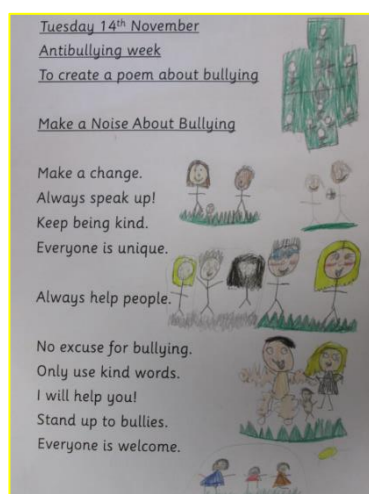 Tuesday 14th November
Antibullying week
To create a poem about bullying
Make a Noise About Bullying
Make a change.
Always speak up!
Keep being kind.
Everyone is unique.
Always help people.
No excuse for bullying.
Only use kind words.
I will help you!
Stand up to bullies.
Everyone is welcome.